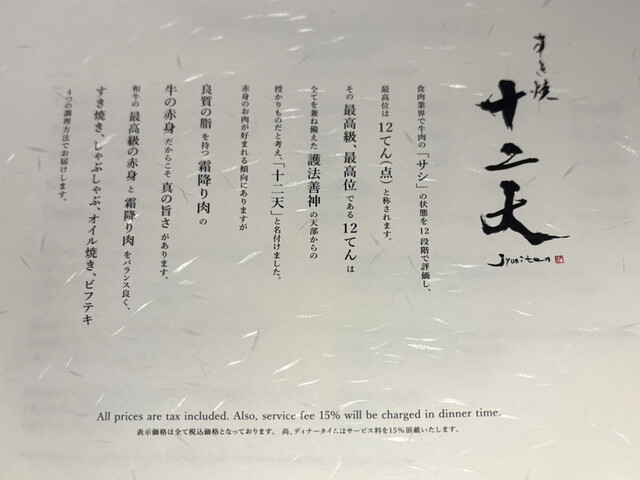 すき焼
十二天
Jyuniten
食肉業界で牛肉の「サシ」の状態を12段階で評価し、
最高位は12てん(点)と称されます。
その最高級、最高位である12てんは
全てを兼ね備えた護法善神の天部からの
授かりものだと考え、「十二天」と名付けました。
赤身のお肉が好まれる傾向にありますが
良質の脂を持つ霜降り肉の
牛の赤身だからこそ真の旨さがあります。
和牛の最高級の赤身と霜降り肉をバランス良く、
すき焼き、しゃぶしゃぶ、オイル焼き、ビフテキ
4つの調理方法でお届けします。
All prices are tax included. Also, service fee 15% will be charged in dinner time.
表示価格は全て税込価格となっております。 尚、ディナータイムはサービス料を15%頂戴いたします。